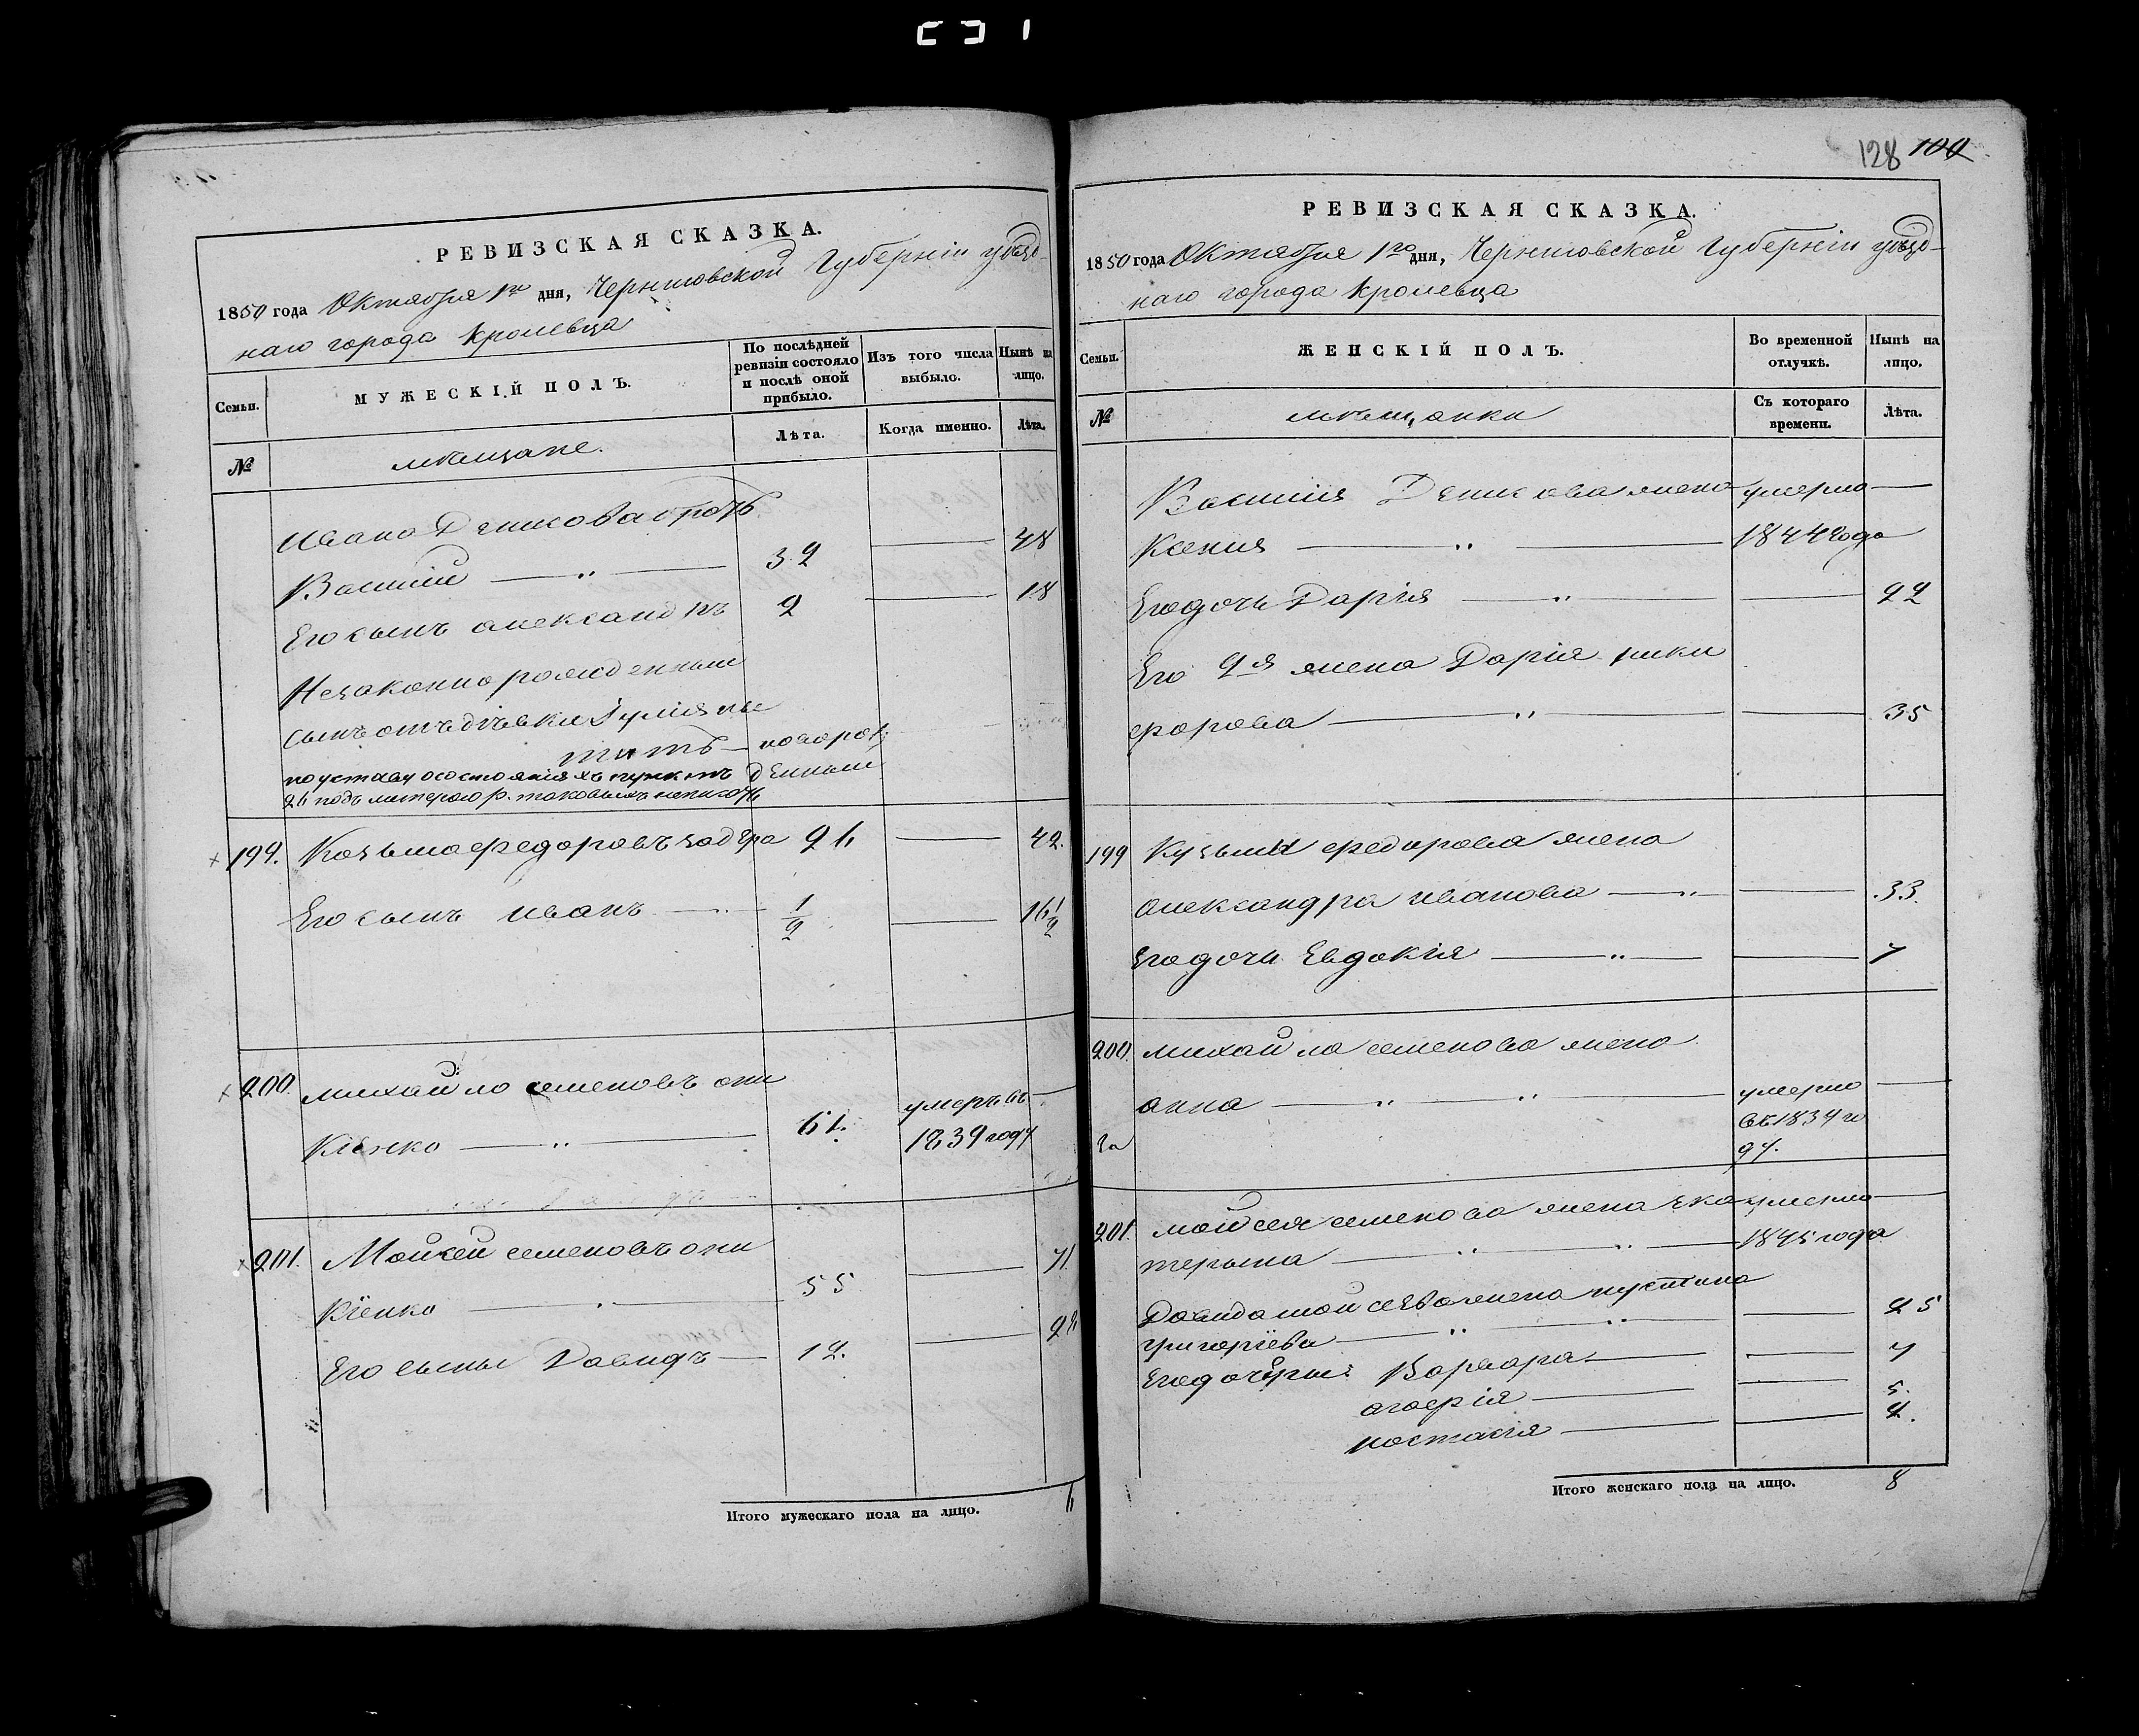 128 100
РЕВИЗСКАЯ СКАЗКА.
1850 года Октября 1го дня, Черниговской Губерніи уѣзд-
наго города Кролевца
Семьи.
МУЖЕСКІЙ ПОЛЪ.
По послѣдней
ревизіи состояло
и послѣ оной
прибыло.
Изъ того числа
выбыло.
Нынѣ на
лицо.
№
мѣщане.
Лѣта.
Когда именно.
Лѣта.
Ивана Денисова братъ
Василій — 32 — 48
Его сынъ александръ 2 — 18
Незаконно рожденный
сынъ отъ дѣвки
титъ — новорож
денный
по уставу о состояніяхъ пунктъ
26 подъ литерою р. таковыхъ
199. Козьма федоровъ 26 — 42.
Его сынъ иванъ — 1/2 — 16 1/2
200. михайло семеновъ они
кіенко — 61. умеръ въ —
1839 году
201. Мойсей семеновъ они
кіенко — 55 — 71.
Его сыны Давидъ — 12. — 28
Итого мужескаго пола на лицо. 6
РЕВИЗСКАЯ СКАЗКА.
1850 года Октября 1го дня, Черниговской Губерніи уѣзд-
наго города Кролевца
Семьи.
ЖЕНСКІЙ ПОЛЪ.
Во временной
отлучкѣ.
Нынѣ на
лицо.
№
мѣщанки
Съ котораго
времени.
Лѣта.
Василія Денисова жена умерла —
Ксенія — 1844 года
Его дочь Дарія — 22
Его 2я жена Дарія ники
форова — 35
199 Кузьмы федорова жена
александра иванова — 33.
Его дочь Евдокія — 7
200. михайла семенова жена
анна — умерла —
въ 1839 го
ду.
201. мойсея семенова жена ека умерла —
терына — 1845 года
Давида мойсеева жена иустина
григоріева — 25
Его дочеры: Варвара — 7
агафія — 5.
настасія — 2.
Итого женскаго пола на лицо. 8